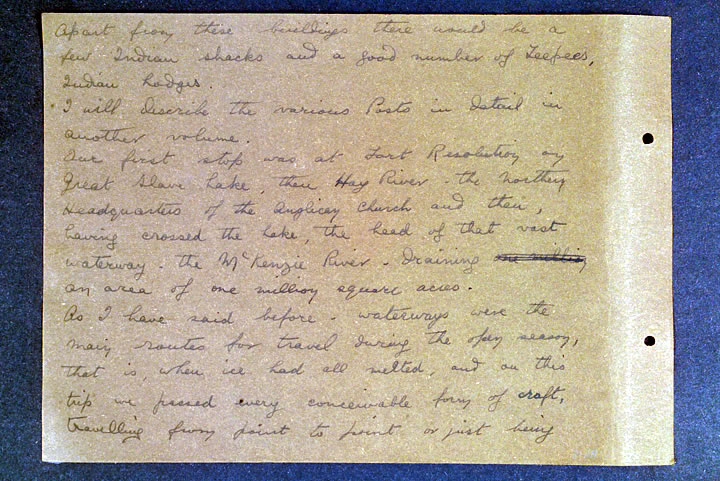 Apart from these buildings there would be a
few Indian shacks and a good number of Teepees,
Indian Lodges.
I will describe the various Posts in detail in
another volume.
Our first stop was at Fort Resolution on
Great Slave Lake, then Hay River - the Northern
Headquarters of the Anglican Church and then,
having crossed the lake, the head of that vast
waterway - the McKenzie River - draining one million
an area of one million square acres.
As I have said before - waterways were the
main routes for travel during the open season,
that is, when ice had all melted, and on this
trip we passed every conceivable form of craft,
travelling from point to point or just being